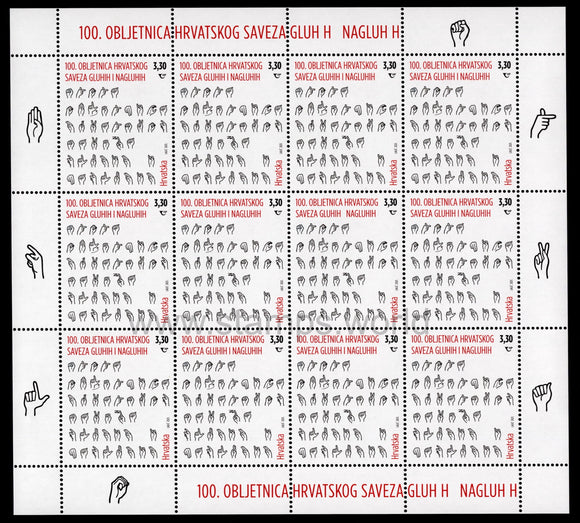 100. OBLJETNICA HRVATSKOG SAVEZA GLUH H NAGLUH H
100. OBLJETNICA HRVATSKOG
SAVEZA GLUHIH I NAGLUHIH
3,30
Hrvatska
100. OBLJETNICA HRVATSKOG
SAVEZA GLUHIH I NAGLUHIH
3,30
Hrvatska
100. OBLJETNICA HRVATSKOG
SAVEZA GLUHIH I NAGLUHIH
3,30
Hrvatska
100. OBLJETNICA HRVATSKOG
SAVEZA GLUHIH I NAGLUHIH
3,30
Hrvatska
100. OBLJETNICA HRVATSKOG
SAVEZA GLUHIH I NAGLUHIH
3,30
Hrvatska
100. OBLJETNICA HRVATSKOG
SAVEZA GLUHIH I NAGLUHIH
3,30
Hrvatska
100. OBLJETNICA HRVATSKOG
SAVEZA GLUHIH I NAGLUHIH
3,30
Hrvatska
100. OBLJETNICA HRVATSKOG
SAVEZA GLUHIH I NAGLUHIH
3,30
Hrvatska
www.stamps.world
100. OBLJETNICA HRVATSKOG
SAVEZA GLUHIH I NAGLUHIH
3,30
Hrvatska
100. OBLJETNICA HRVATSKOG
SAVEZA GLUHIH I NAGLUHIH
3,30
Hrvatska
100. OBLJETNICA HRVATSKOG
SAVEZA GLUHIH I NAGLUHIH
3,30
Hrvatska
100. OBLJETNICA HRVATSKOG
SAVEZA GLUHIH I NAGLUHIH
3,30
Hrvatska
100. OBLJETNICA HRVATSKOG SAVEZA GLUH H NAGLUH H